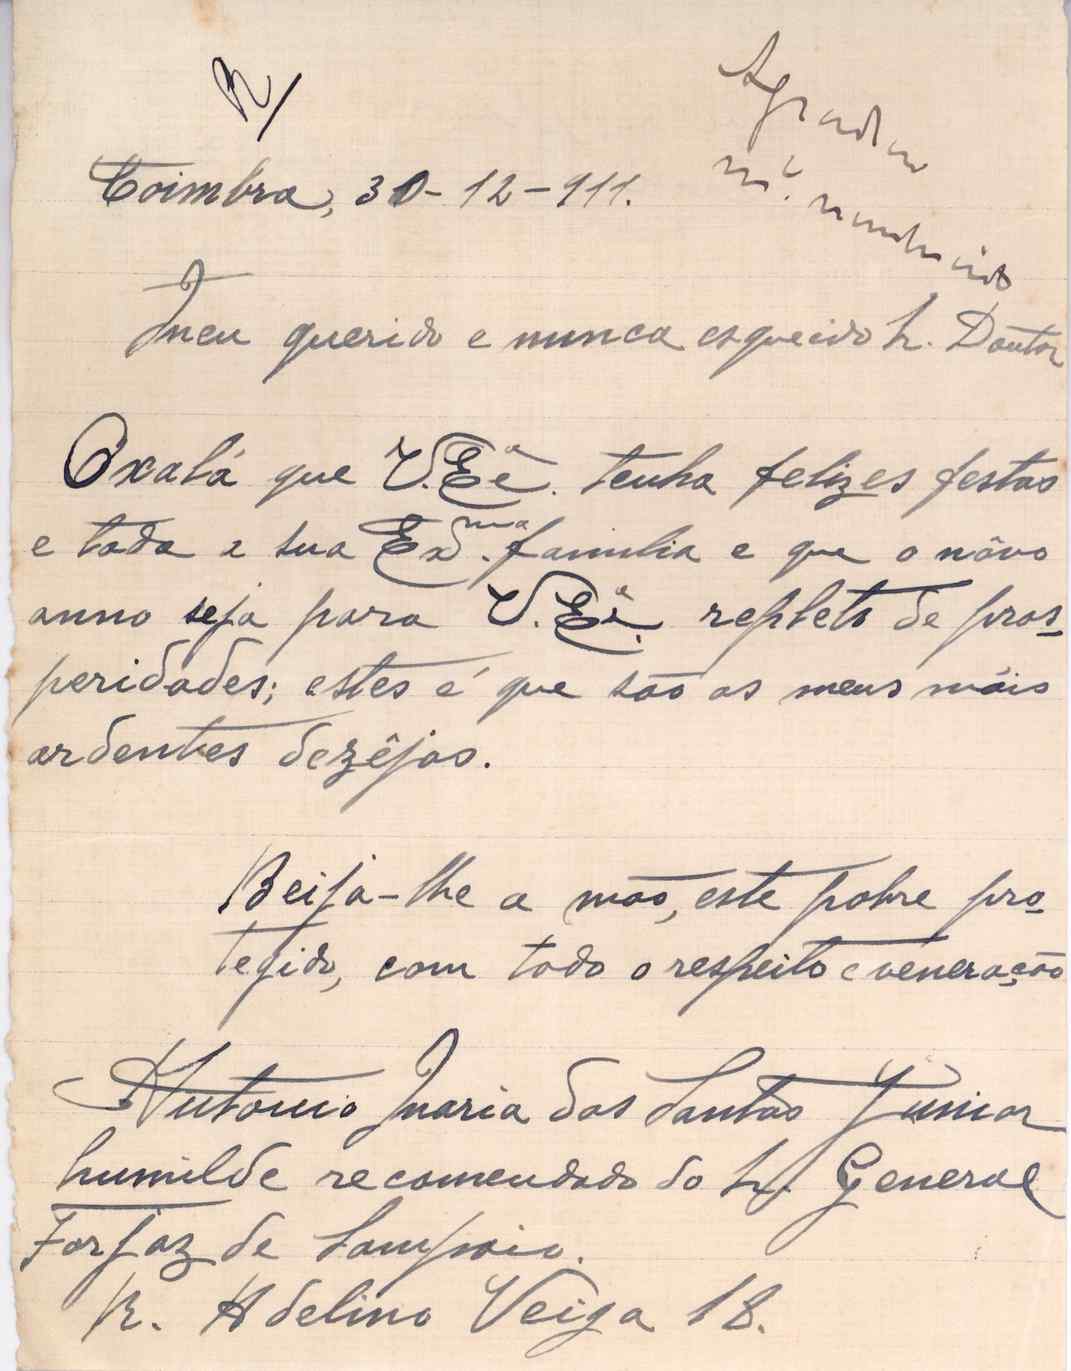 R/
Agradeço
mto.
Coimbra, 30-12-911.
Meu querido e nunca esquecido Sr. Doutor
Oxalá que V. Exª. tenha felizes festas
e toda a sua Exma. familia e que o nôvo
anno seja para V. Exª. repleto de pros-
peridades; estes é que são os meus máis
ardentes dezêjos.
Beija-lhe a mão, este pobre pro-
tegido, com todo o respeito e veneração
Antonio Maria dos Santos Junior
humilde recomendado do Sr. General
Forjaz de Sampaio.
R. Adelino Veiga 18.